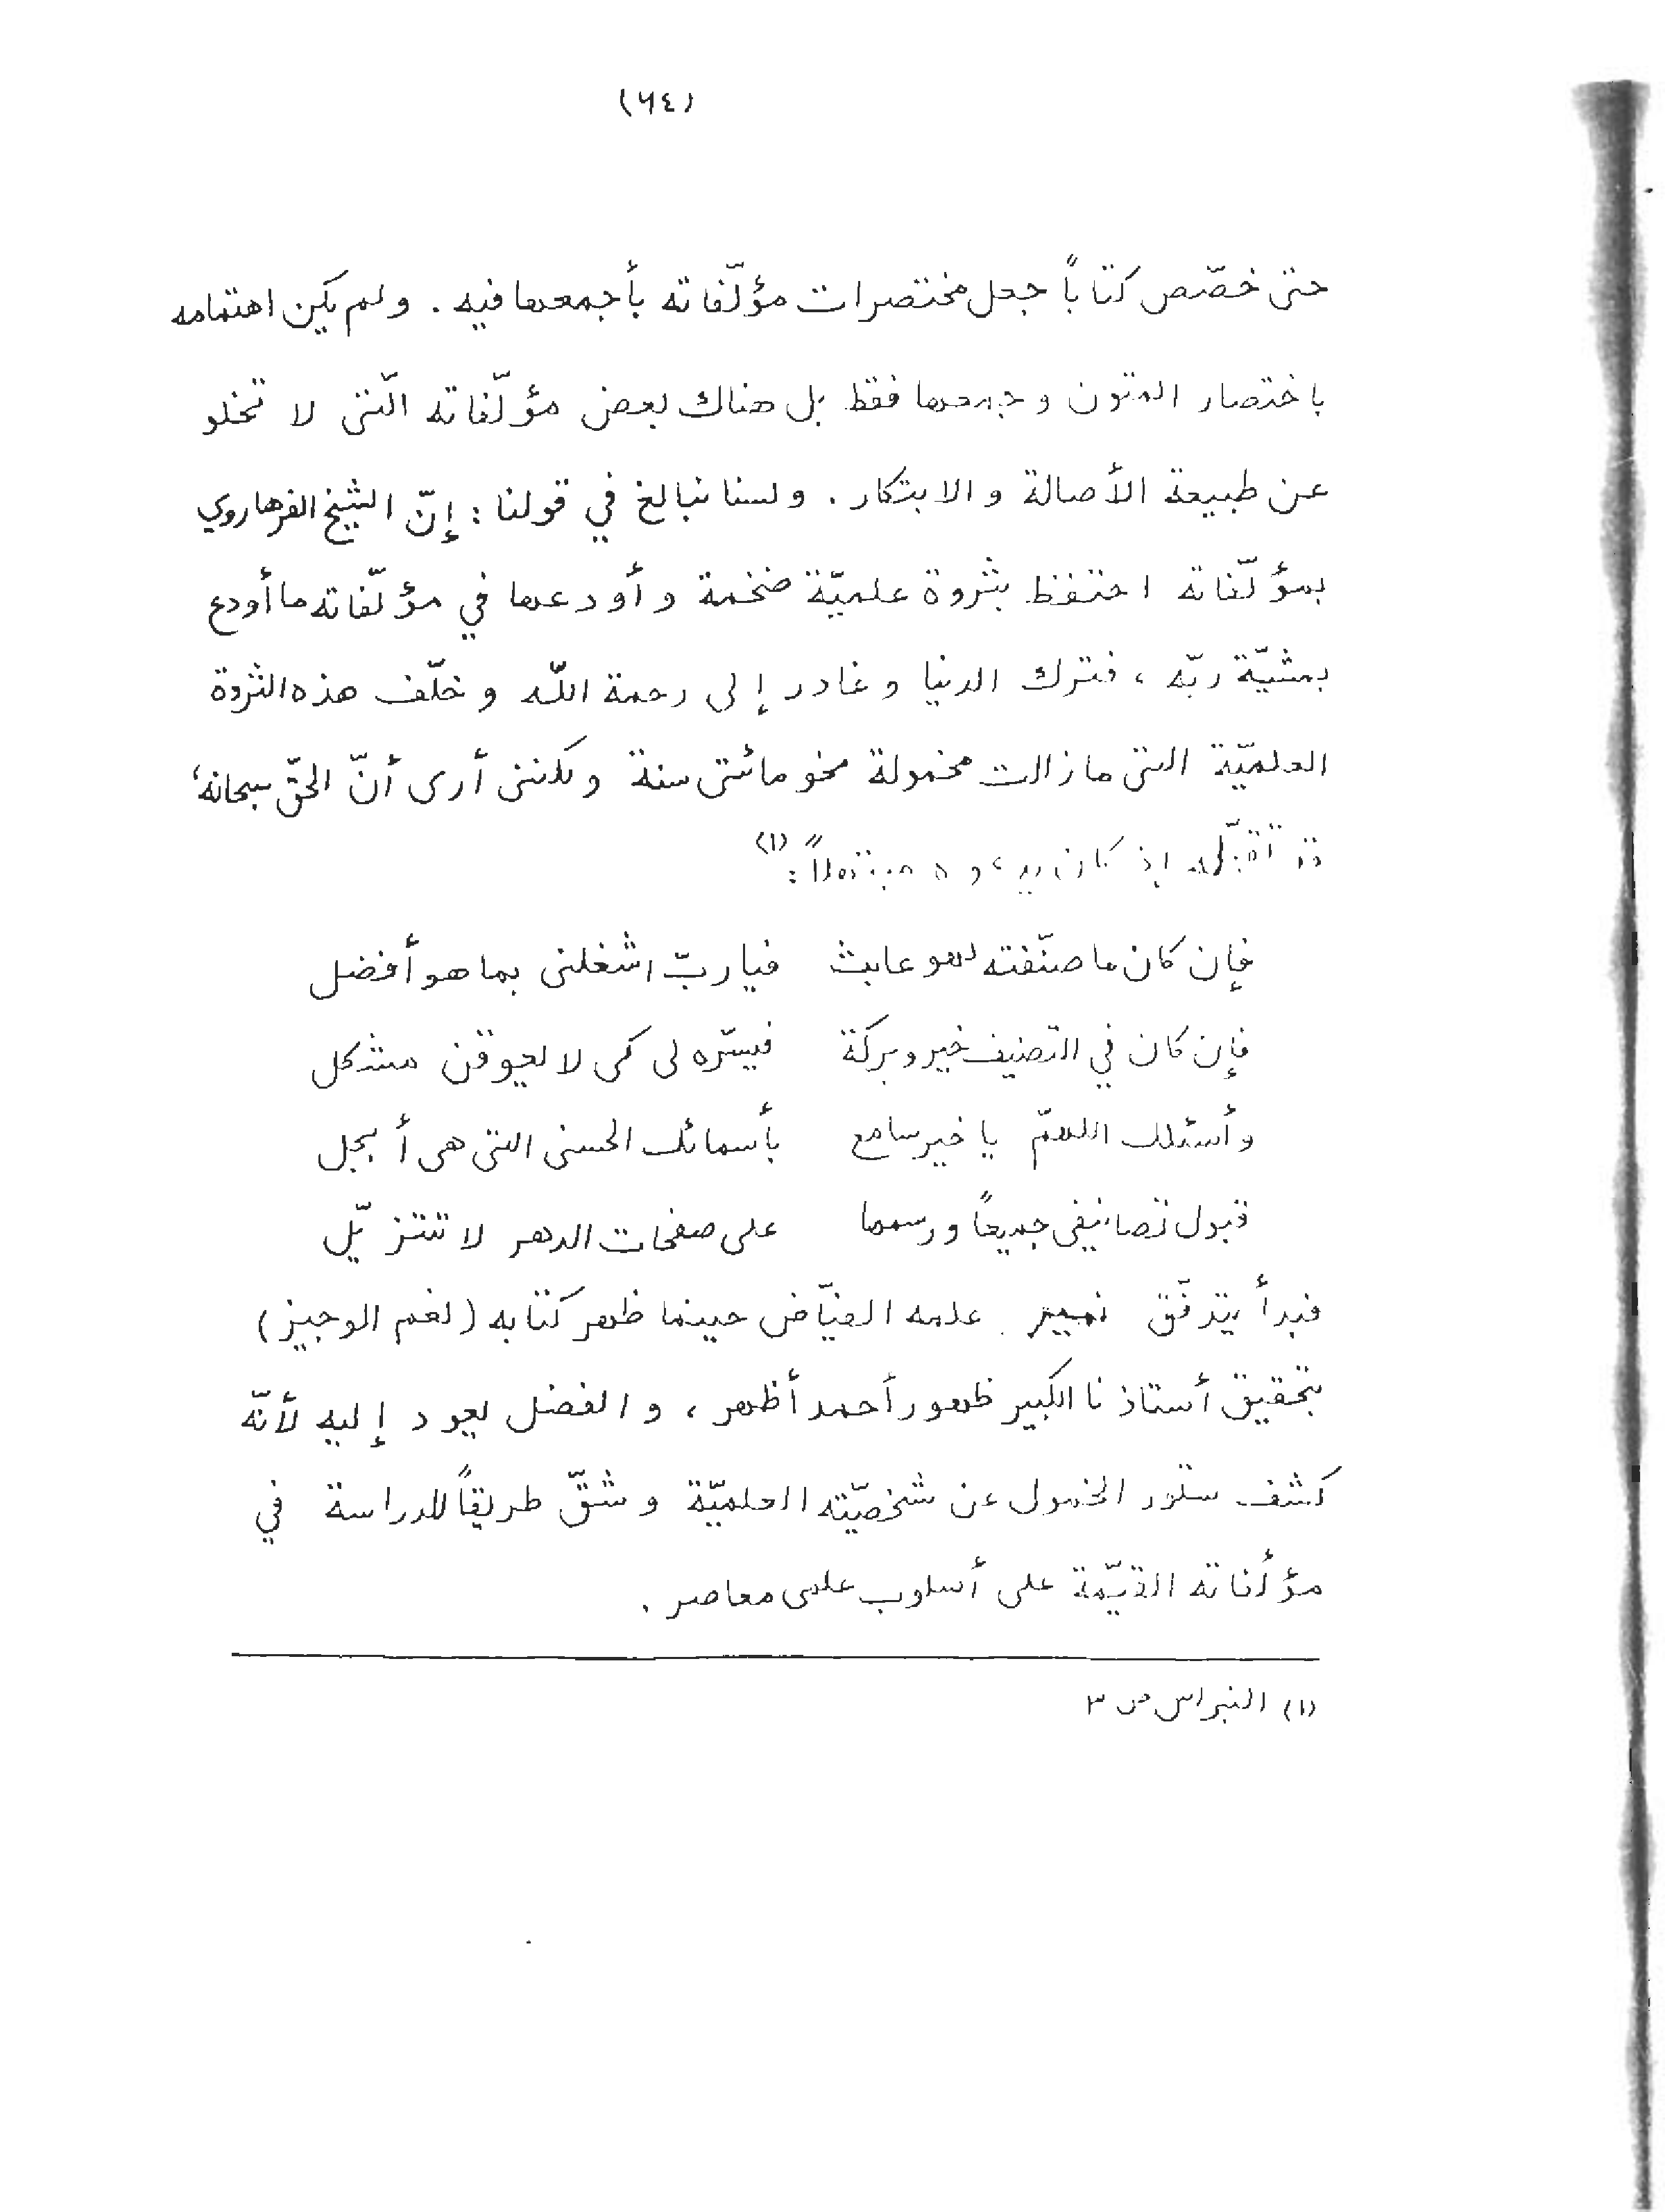 (٦٤)
حتى خصّص كتاباً جعل مختصرات مؤلّفاته بأجمعها فيه . ولم يكن اهتمامه
باختصار المتون وجمعها فقط بل هناك بعض مؤلّفاته الّتى لا تخلو
عن طبيعة الأصالة و الابتكار . ولسنا نبالغ في قولنا : إنّ الشيخ الفرهاروي
بمؤلّفاته احتفظ بثروة علميّة ضخمة و أودعها في مؤلّفاته ما أودع
بمشيّة ربّه ، فترك الدنيا و غادر إلى رحمة اللّه و خلّف هذه الثروة
العلميّة التى ما زالت مخمولة نحو مائتى سنة و لكننى أرى أنّ الحقّ سبحانه،
قد تقبّله إذ كان يدعوه مبتهلاً : (١)
فإن كان ما صنّفته لهو عابث فيا ربّ اشغلنى بما هو أفضل
فإن كان في التصنيف خير و بركة فيسّره لى كى لا يعوقن مشكل
و أسئلك اللهمّ يا خير سامع بأسمائك الحسنى التى هى أبجل
قبول تصانيفى جميعاً و رسمها على صفحات الدهر لا تتزيّل
فبدأ يتدفّق نمير علمه الفيّاض حينما ظهر كتابه (نعم الوجيز)
بتحقيق أستاذنا الكبير ظهور أحمد أظهر ، و الفضل يعود إليه لأنّه
كشف ستور الخمول عن شخصيّته العلميّة و شقّ طريقاً للدراسة في
مؤلفاته القيّمة على أسلوب علمى معاصر .
(١) النبراس ص ٣